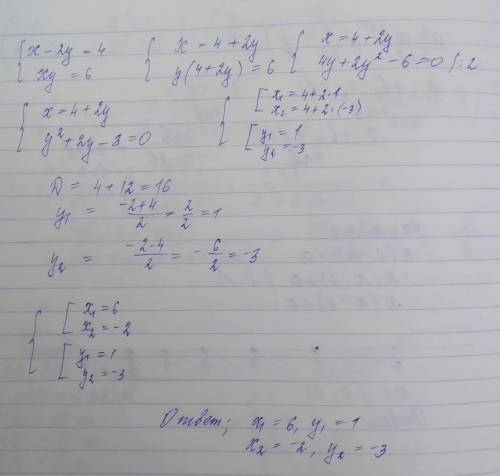 { x - 2y = 4 { x = 4 + 2y { x = 4 + 2y
{ xy = 6 { y(4 + 2y) = 6 { 4y + 2y² - 6 = 0 /: 2
{ x = 4 + 2y { [ x₁ = 4 + 2 · 1
[ x₂ = 4 + 2 · (-3)
{ y² + 2y - 3 = 0 [ y₁ = 1
[ y₂ = -3
D = 4 + 12 = 16
y₁ = (-2+4)/2 = 2/2 = 1
y₂ = (-2-4)/2 = -6/2 = -3
{ [ x₁ = 6
[ x₂ = -2
[ y₁ = 1
[ y₂ = -3
Ответ; x₁ = 6, y₁ = 1
x₂ = -2, y₂ = -3